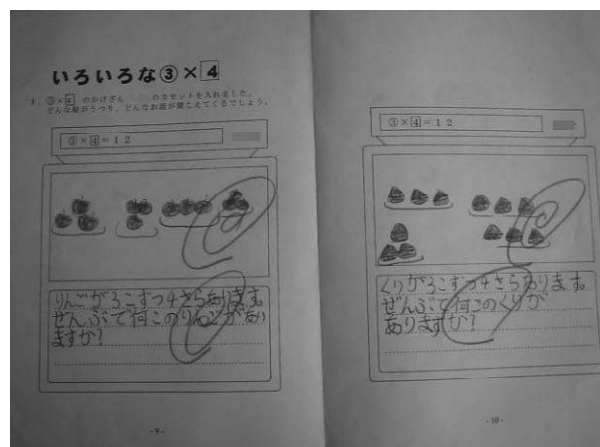 いろいろな③×4
1 ③×4 のかけざん のカセットを入れました。
どんな絵がうつり、どんなお話が聞こえてくるでしょう。
③×4=12
りんごが3こずつ4さらあります。
ぜんぶで何このりんごがあり
ますか?
-9-
③×4=12
くりが3こずつ4さらあります。
ぜんぶで何このくりが
ありますか?
-10-